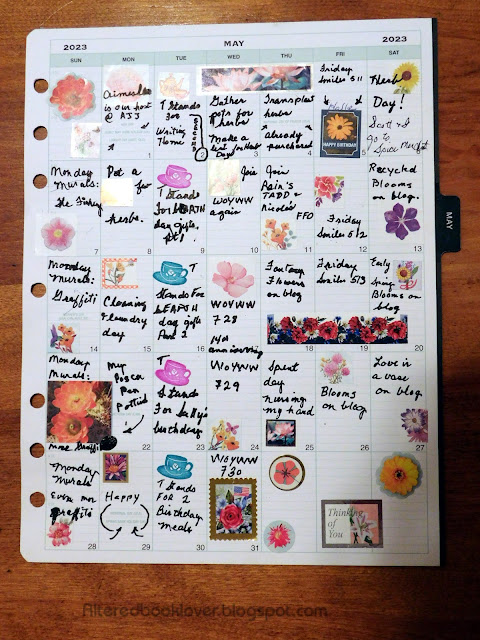 2023 MAY 2023
SUN MON TUE WED THU FRI SAT
is our host
@ AJJ
T Stands
for
Writing
Time
2
Gather
pots for
herbs
Make a
Transplant
herbs
already
purchased
4
Friday
Smiles 511
HAPPY BIRTHDAY
Herb
Day!
Scott & I
go to
Monday
Murals:
7
Put a
few
herbs.
8
T
Stands
For
day gifts
Pt 1
9
Join
WOYWW
again
10
Join
Rain's
TADD &
Nicole's
FFO
11
Friday
Smiles 512
12
Recycled
Blooms
on blog.
13
Monday
Murals:
Graffiti
14
Cleaning
& Laundry
day
15
T
Stands For
day gifts
Part 2
16
WOYWW
728
14th
anniversary
Fantasy
Flowers
on blog
18
Friday
Smiles 513
19
Early
Spring
Blooms on
blog
20
Monday
Murals:
More Graffiti
My
Poison
Pen
Pottied
is
22
T
Stands
For Sally's
birthday
23
WOYWW
729
24
Spent
day
nursing
my hand
25
Blooms
on blog
26
Love is
a vase
on blog
27
Monday
Murals
Even more
graffiti
28
Happy
29
T Stands
FOR 2
Birthday
Meals
30
WOYWW
730
31
Thinking
of You
MAY
Alteredbooklover.blogspot.com